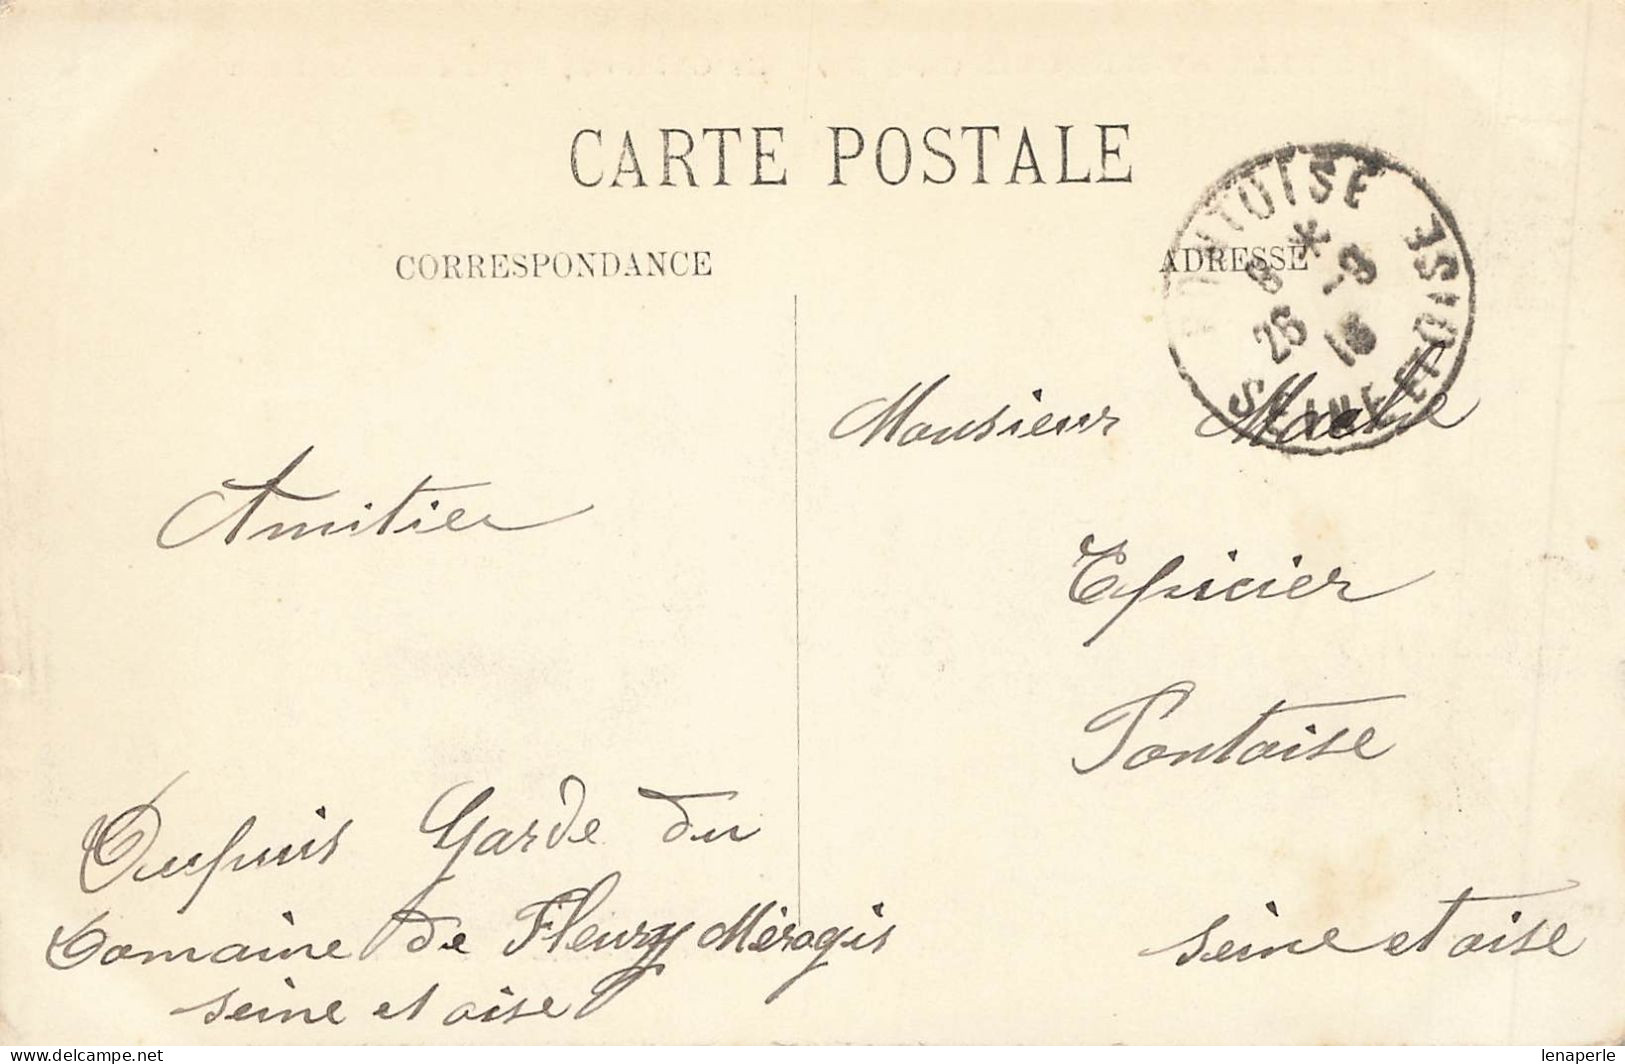 CARTE POSTALE
CORRESPONDANCE
ADRESSE
PONTOISE
8 * -9
26 16
SEINE ET OISE
Monsieur
Epicier
Pontoise
seine et oise
Amitiés
Dupuis Garde du
Domaine de Fleury Mérogis
seine et oise
www.delcampe.net
lenaperle